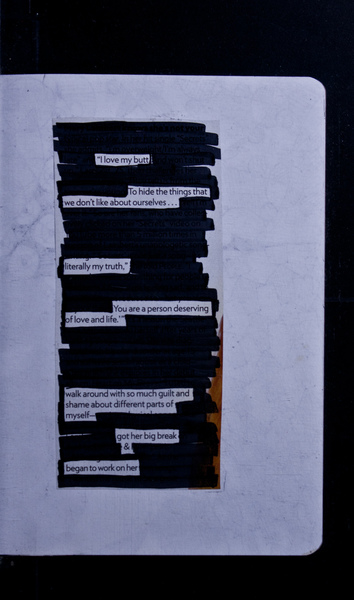 "I love my butt
To hide the things that
we don't like about ourselves . . .
literally my truth,"
You are a person deserving
of love and life.'"
walk around with so much guilt and
shame about different parts of
myself—
got her big break
&
began to work on her